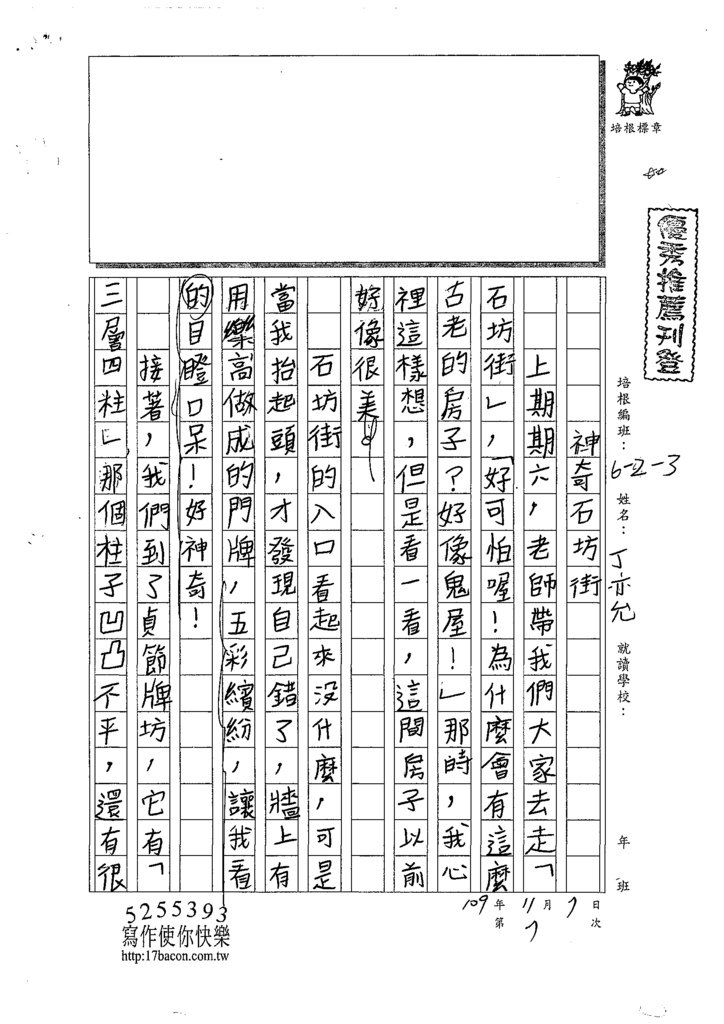 培根標章
優秀推薦刊登
培根編班：6-2-3 姓名：丁亦允 就讀學校： 年 班
109年11月7日
第7次
神奇石坊街
上期期六，老師帶我們大家去走「
石坊街」，「好可怕喔！為什麼會有這麼
古老的房子？好像鬼屋！」那時，我心
裡這樣想，但是看一看，這間房子以前
好像很美。
石坊街的入口看起來沒什麼，可是
當我抬起頭，才發現自己錯了，牆上有
用樂高做成的門牌，五彩繽紛，讓我看
的目瞪口呆！好神奇！
接著，我們到了貞節牌坊，它有「
三層四柱」那個柱子凹凸不平，還有很
5255393
寫作使你快樂
http:17bacon.com.tw